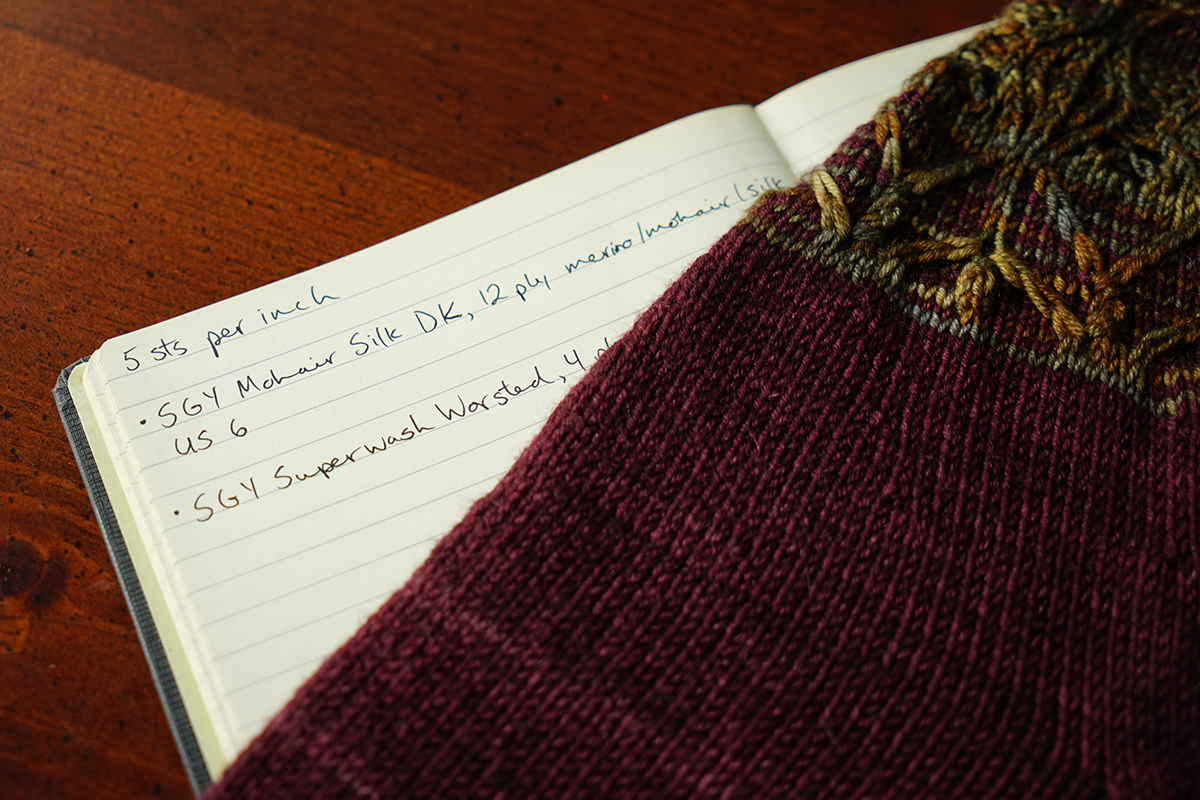 5 sts per inch
• SGY Mohair Silk DK, 12 ply merino/mohair/silk
US 6
• SGY Superwash Worsted, 4